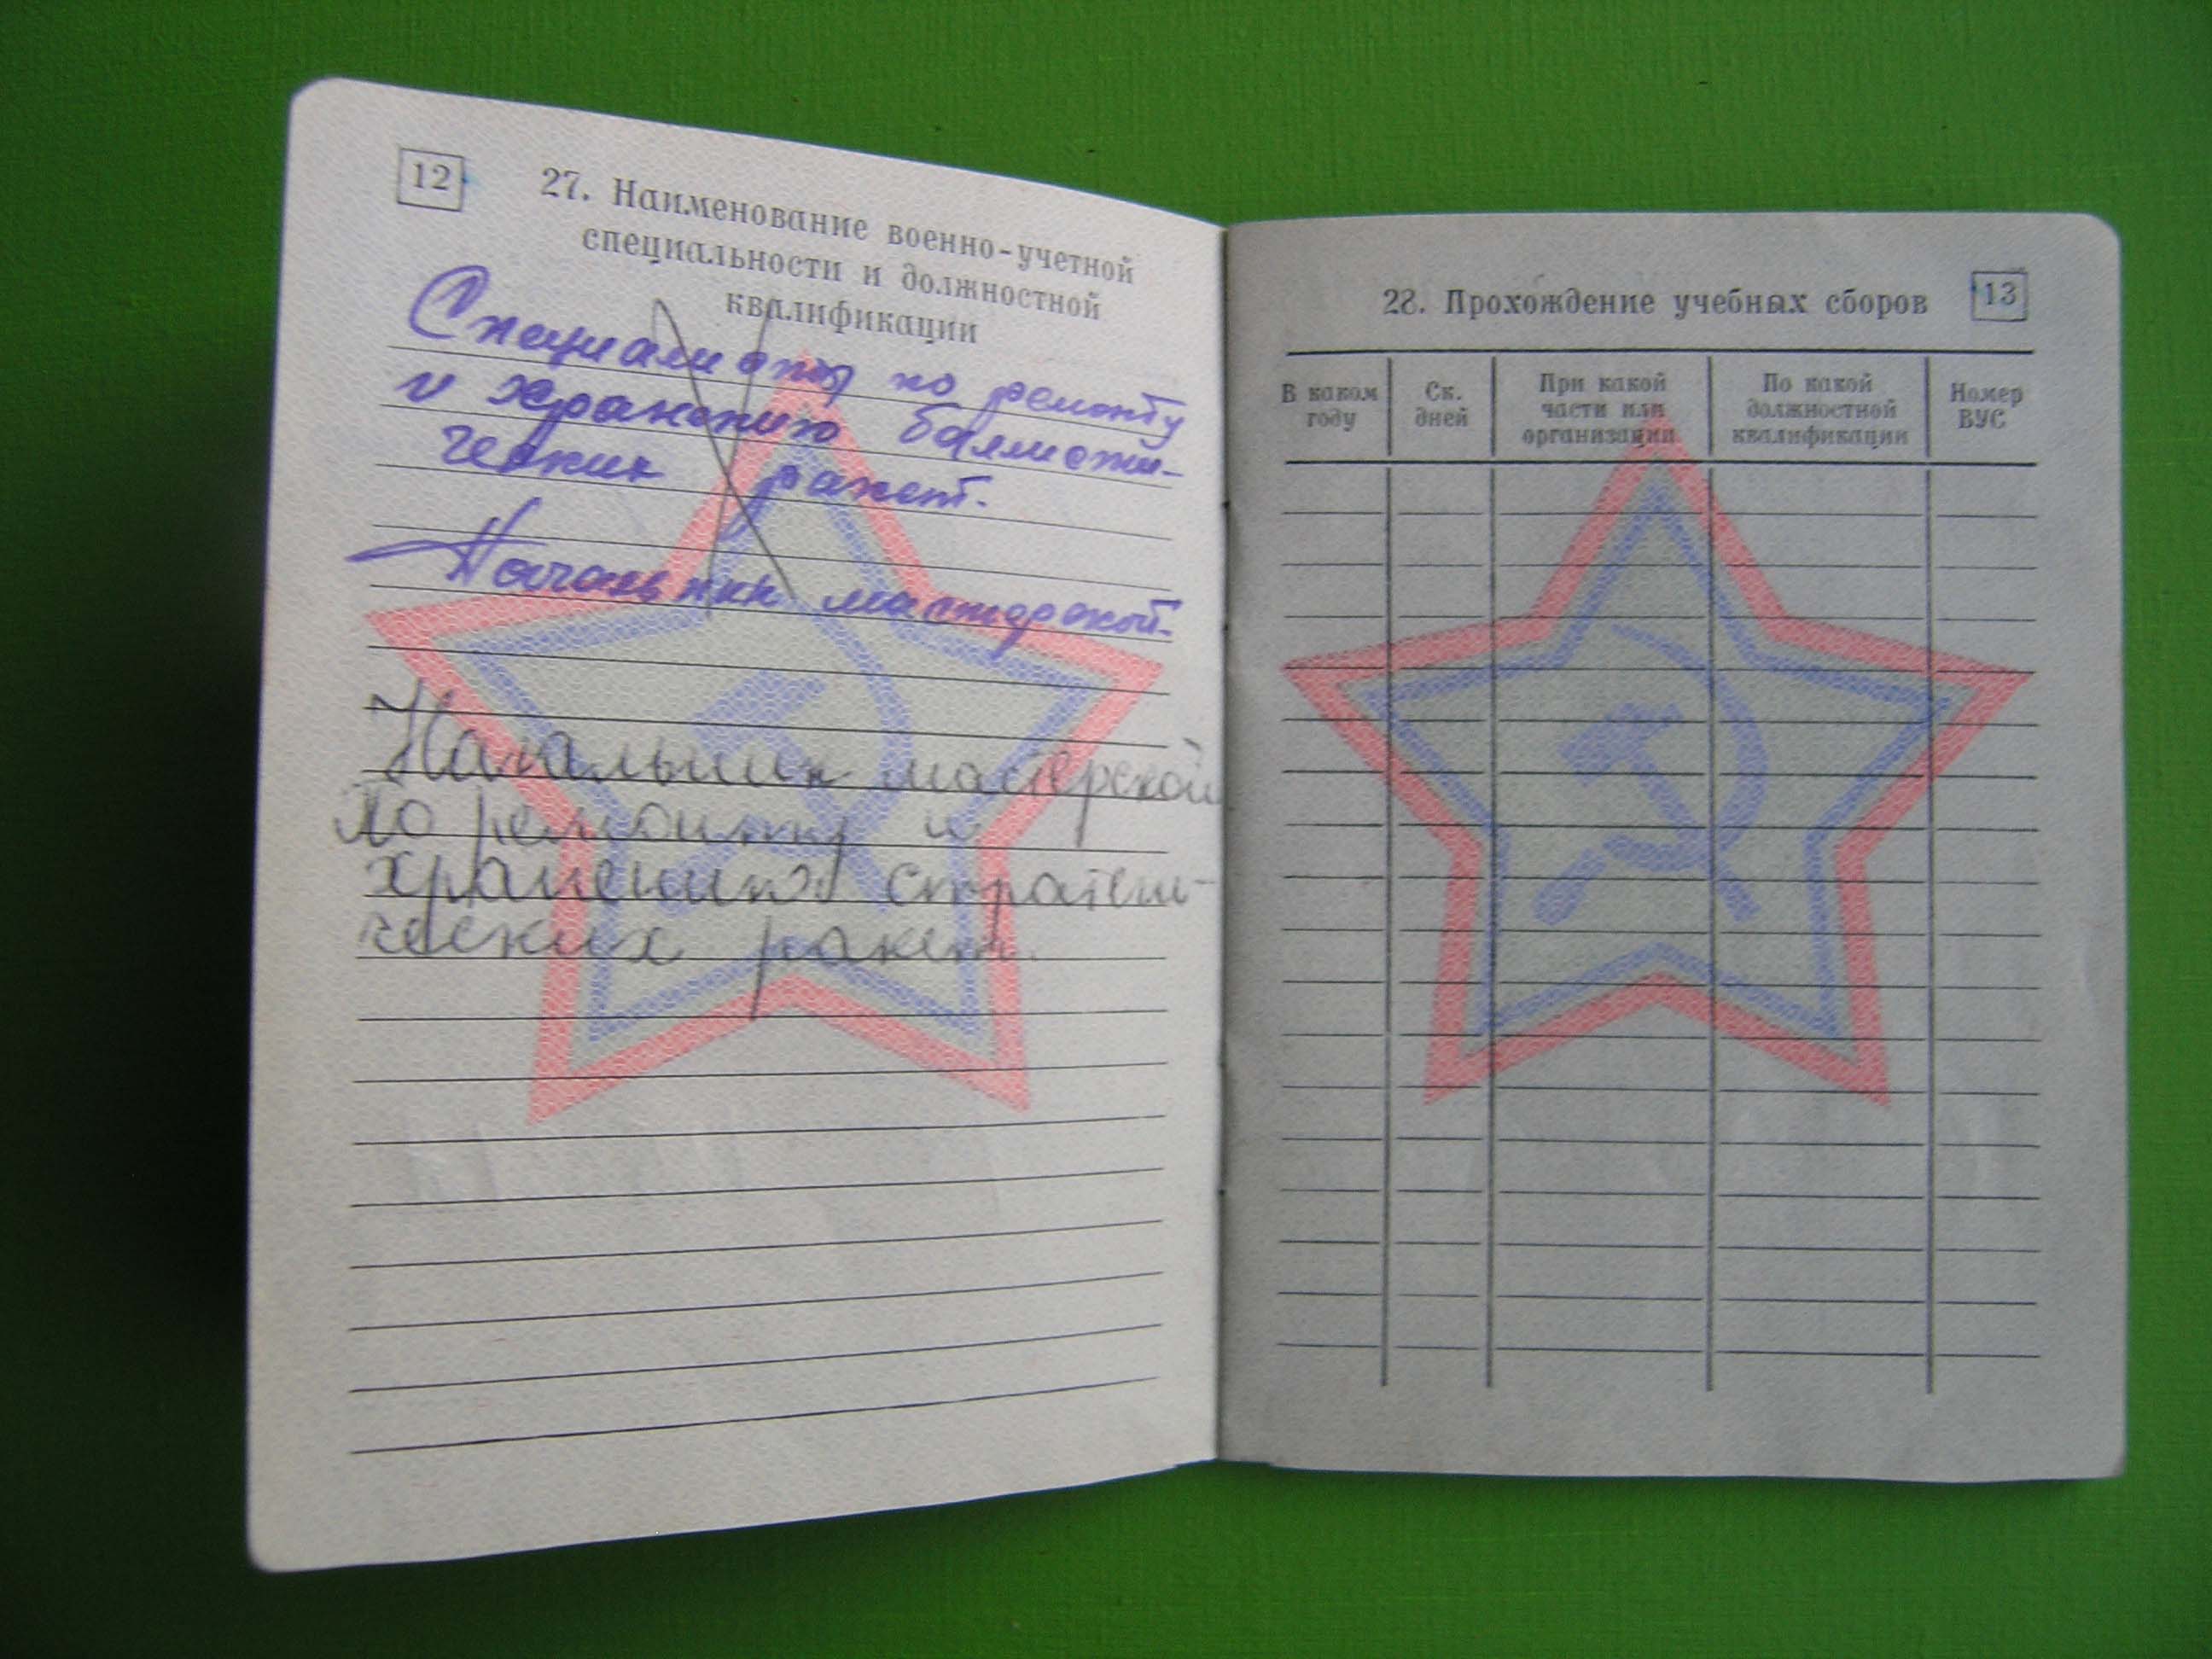 12
27. Наименование военно-учетной
специальности и должностной
квалификации
Специалисты по ремонту
и хранению баллисти-
ческих ракет.
Начальник мастерской.
Начальник мастерской
по ремонту и
хранению стратеги-
ческих ракет.
28. Прохождение учебных сборов
13
В каком
году
Ск.
дней
При какой
части или
организации
По какой
должностной
квалификации
Номер
ВУС